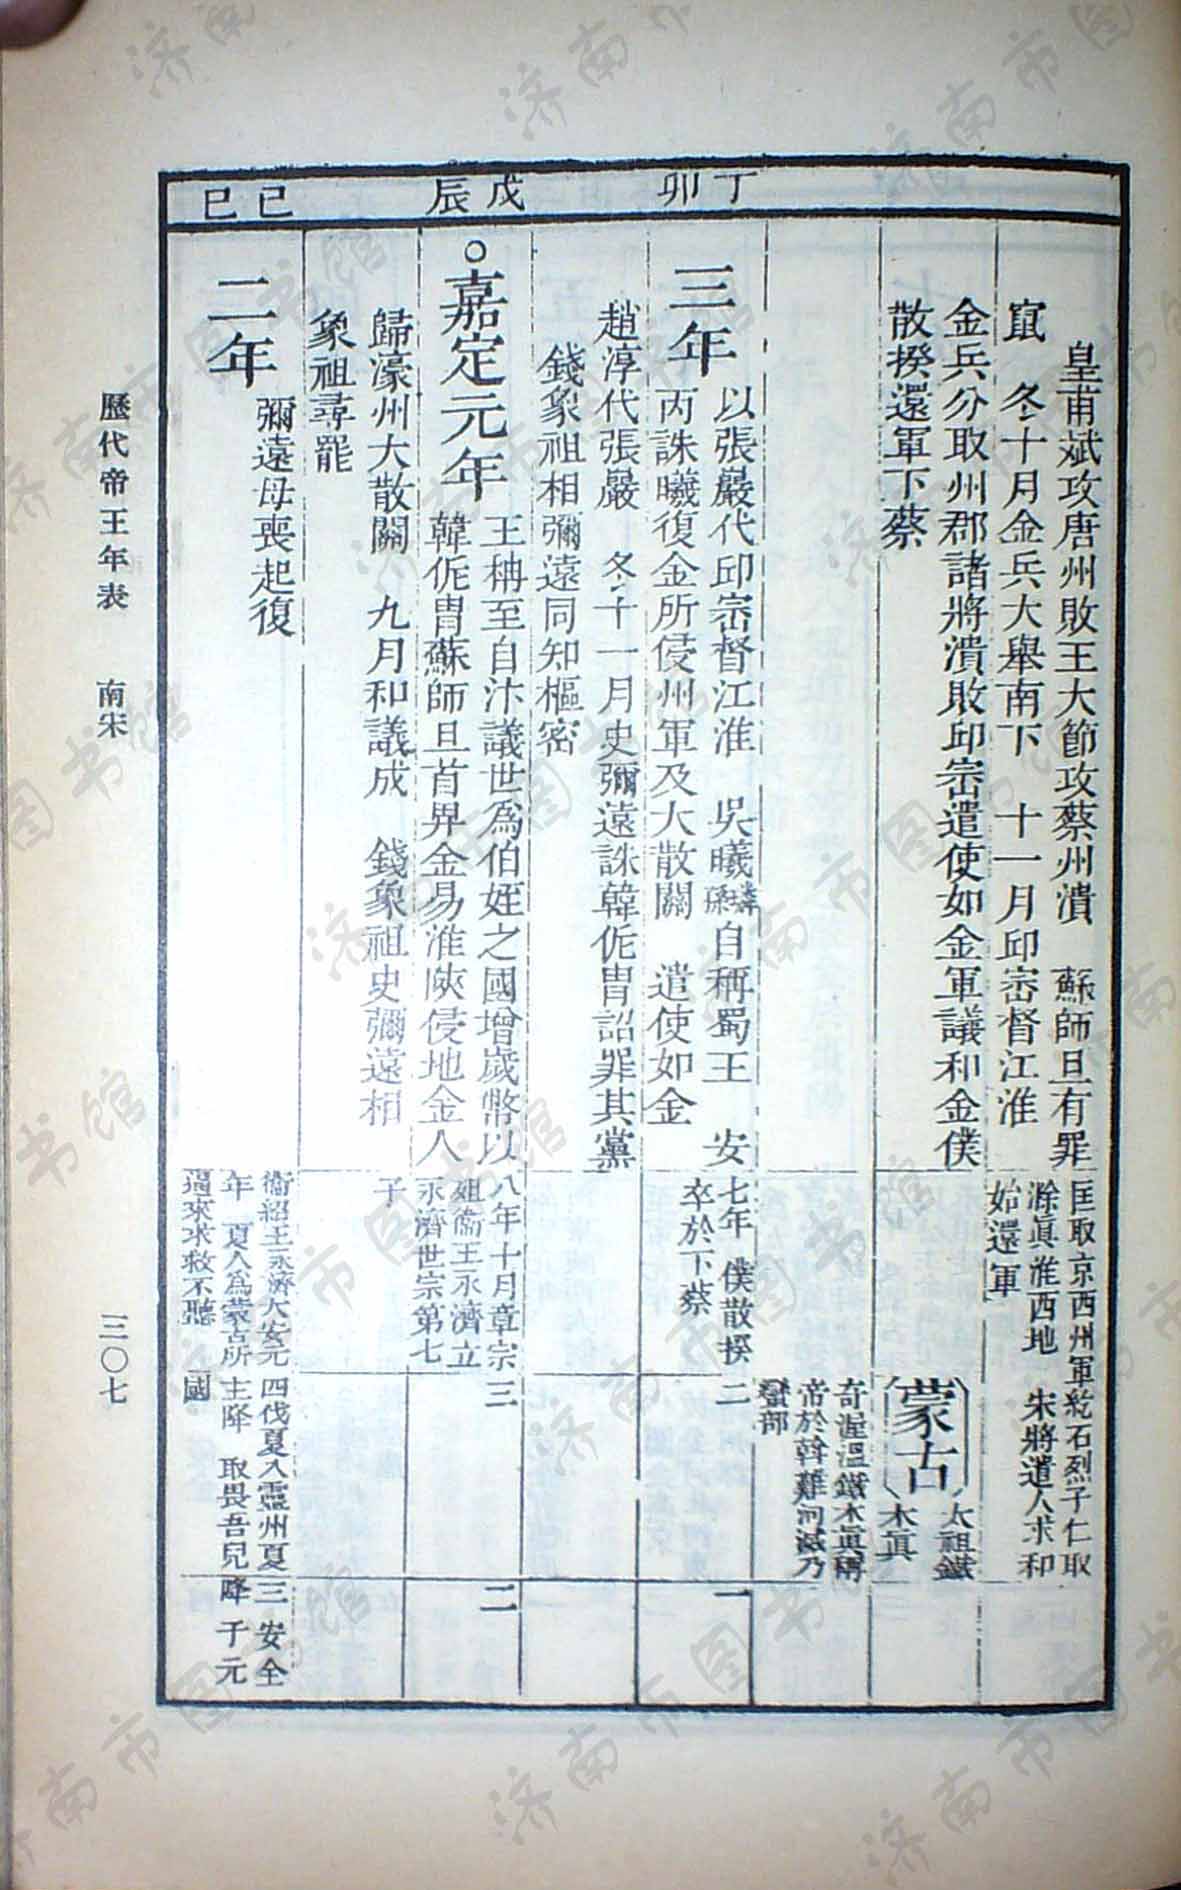 丁卯
戊辰
己巳
皇甫斌攻唐州敗王大節攻蔡州潰　蘇師旦有罪
竄　冬十月金兵大舉南下　十一月邱崈督江淮
金兵分取州郡諸將潰敗邱崈遣使如金軍議和金僕
散揆還軍下蔡
匡取京西州軍紇石烈子仁取
滁眞淮西地　宋將遣人求和
始還軍
蒙古
太祖鐵
木眞
奇渥溫鐵木眞稱
帝於斡難河滅乃
蠻部
三年
以張巖代邱崈督江淮　吳曦璘孫自稱蜀王　安
丙誅曦復金所侵州軍及大散關　遣使如金
趙淳代張巖　冬十一月史彌遠誅韓侂胄詔罪其黨
錢象祖相彌遠同知樞密
七年　僕散揆
卒於下蔡
二
一
○嘉定元年
王柟至自汴議世爲伯姪之國增歲幣以
韓侂胄蘇師旦首畀金易淮陝侵地金人
歸濠州大散關　九月和議成　錢象祖史彌遠相
象祖尋罷
八年十月章宗
殂衞王永濟立
永濟世宗第七
子
三
二
二年
彌遠母喪起復
衞紹王永濟大安元
年　夏人爲蒙古所
逼來求救不聽
四伐夏入靈州夏
主降　取畏吾兒
國
三　安全
降子元
歷代帝王年表　南宋
三〇七
济南市图书馆